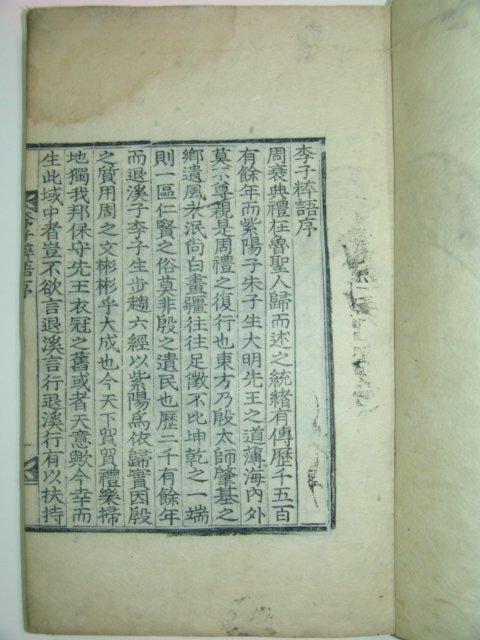 李子粹語序
周衰典禮在魯聖人歸而述之統緒有傳歷千五百
有餘年而紫陽子朱子生大明先王之道薄海內外
莫不尊親是周禮之復行也東方乃殷太師肇基之
鄕遺風未泯尙白畫疆往往足徵不比坤乾之一端
則一區仁賢之俗莫非殷之遺民也歷二千有餘年
而退溪子李子生步趨六經以紫陽爲依歸實因殷
之質用周之文彬彬乎大成也今天下貿貿禮樂掃
地獨我邦保守先王衣冠之舊或者天意歟今幸而
生此域中者豈不欲言退溪言行退溪行有以扶持
李子粹語序